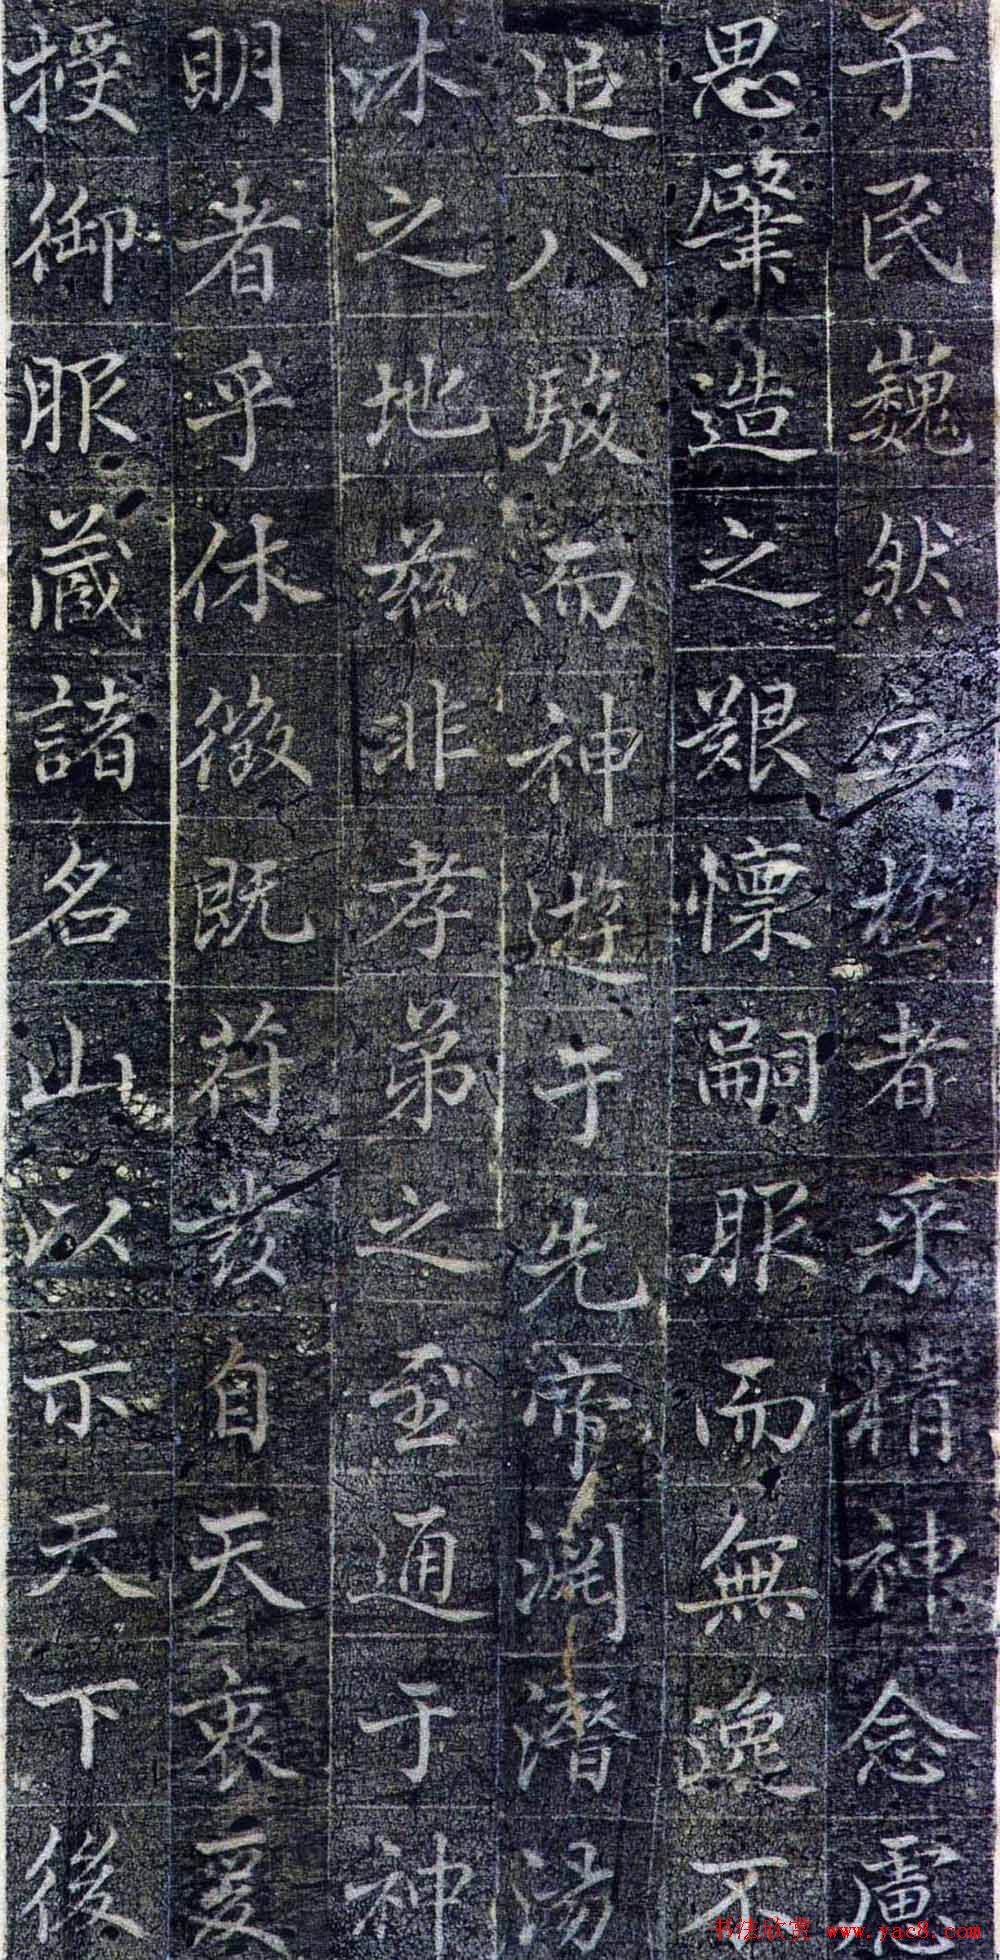 子民巍然立極者乎精神念慮
思肇造之艱懍嗣服而無逸不
追八駿而神遊于先帝淵潛湯
沐之地茲非孝弟之至通于神
明者乎休徵既符發自天衷爰
授御服藏諸名山以示天下後
书法欣赏 www.yac8.com